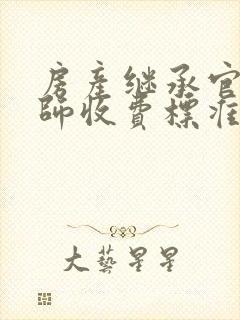 房產继承官
師收費標准
大藝星星